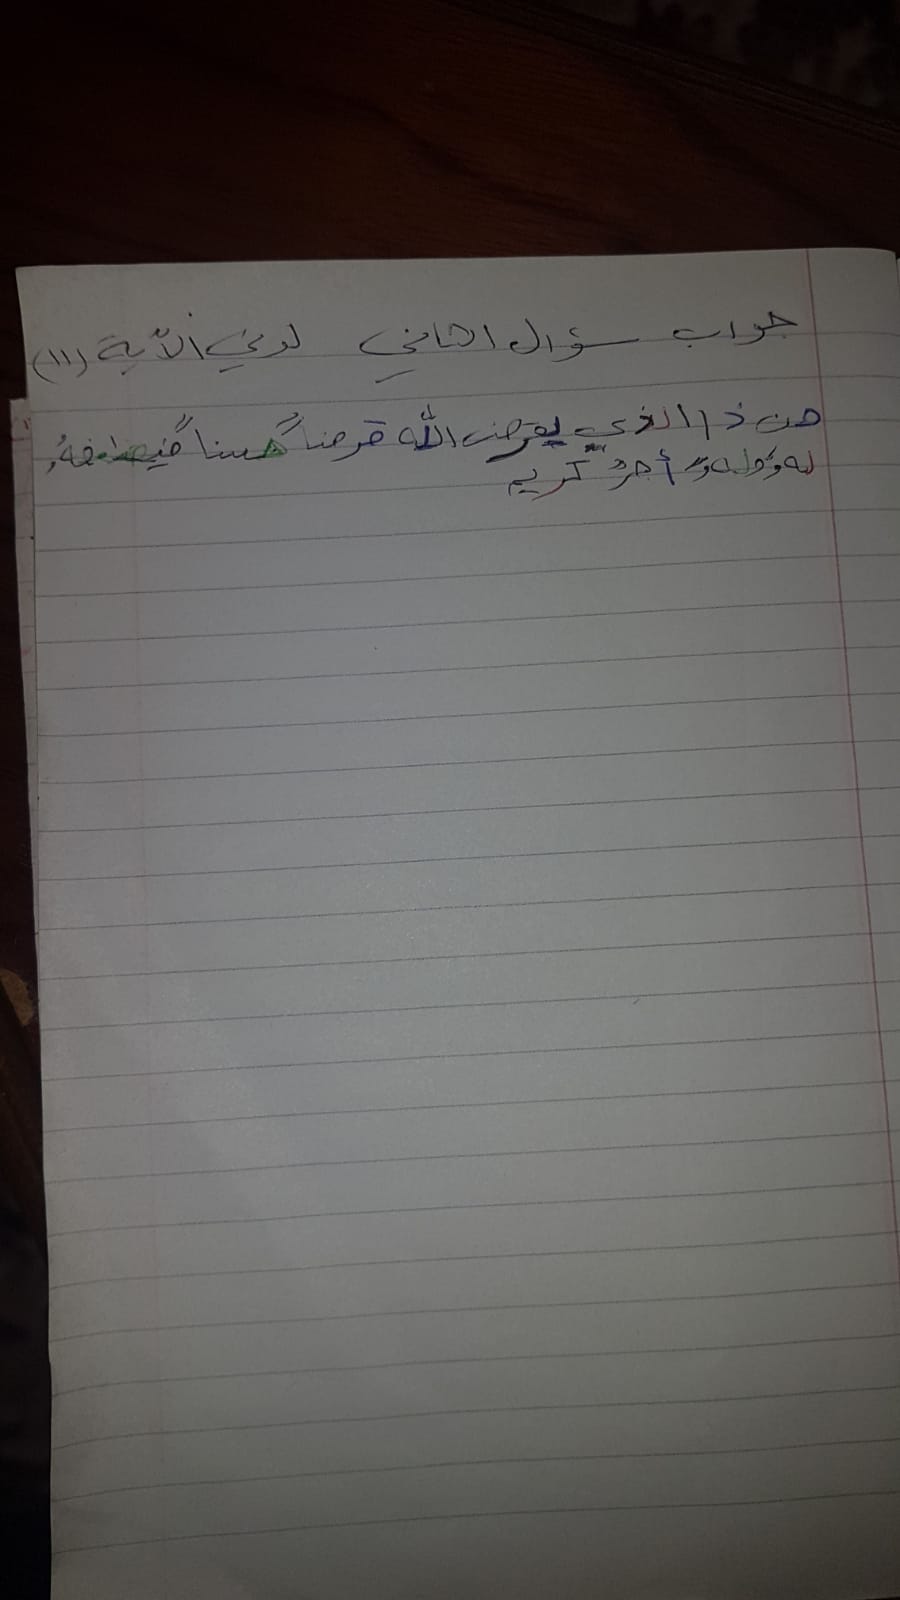 جواب سؤال الثاني لوني الآية (١١)
من ذا الذي يقرض الله قرضاً حسناً فيضعفهُ,
له وُله وُ أجرٌ كريم